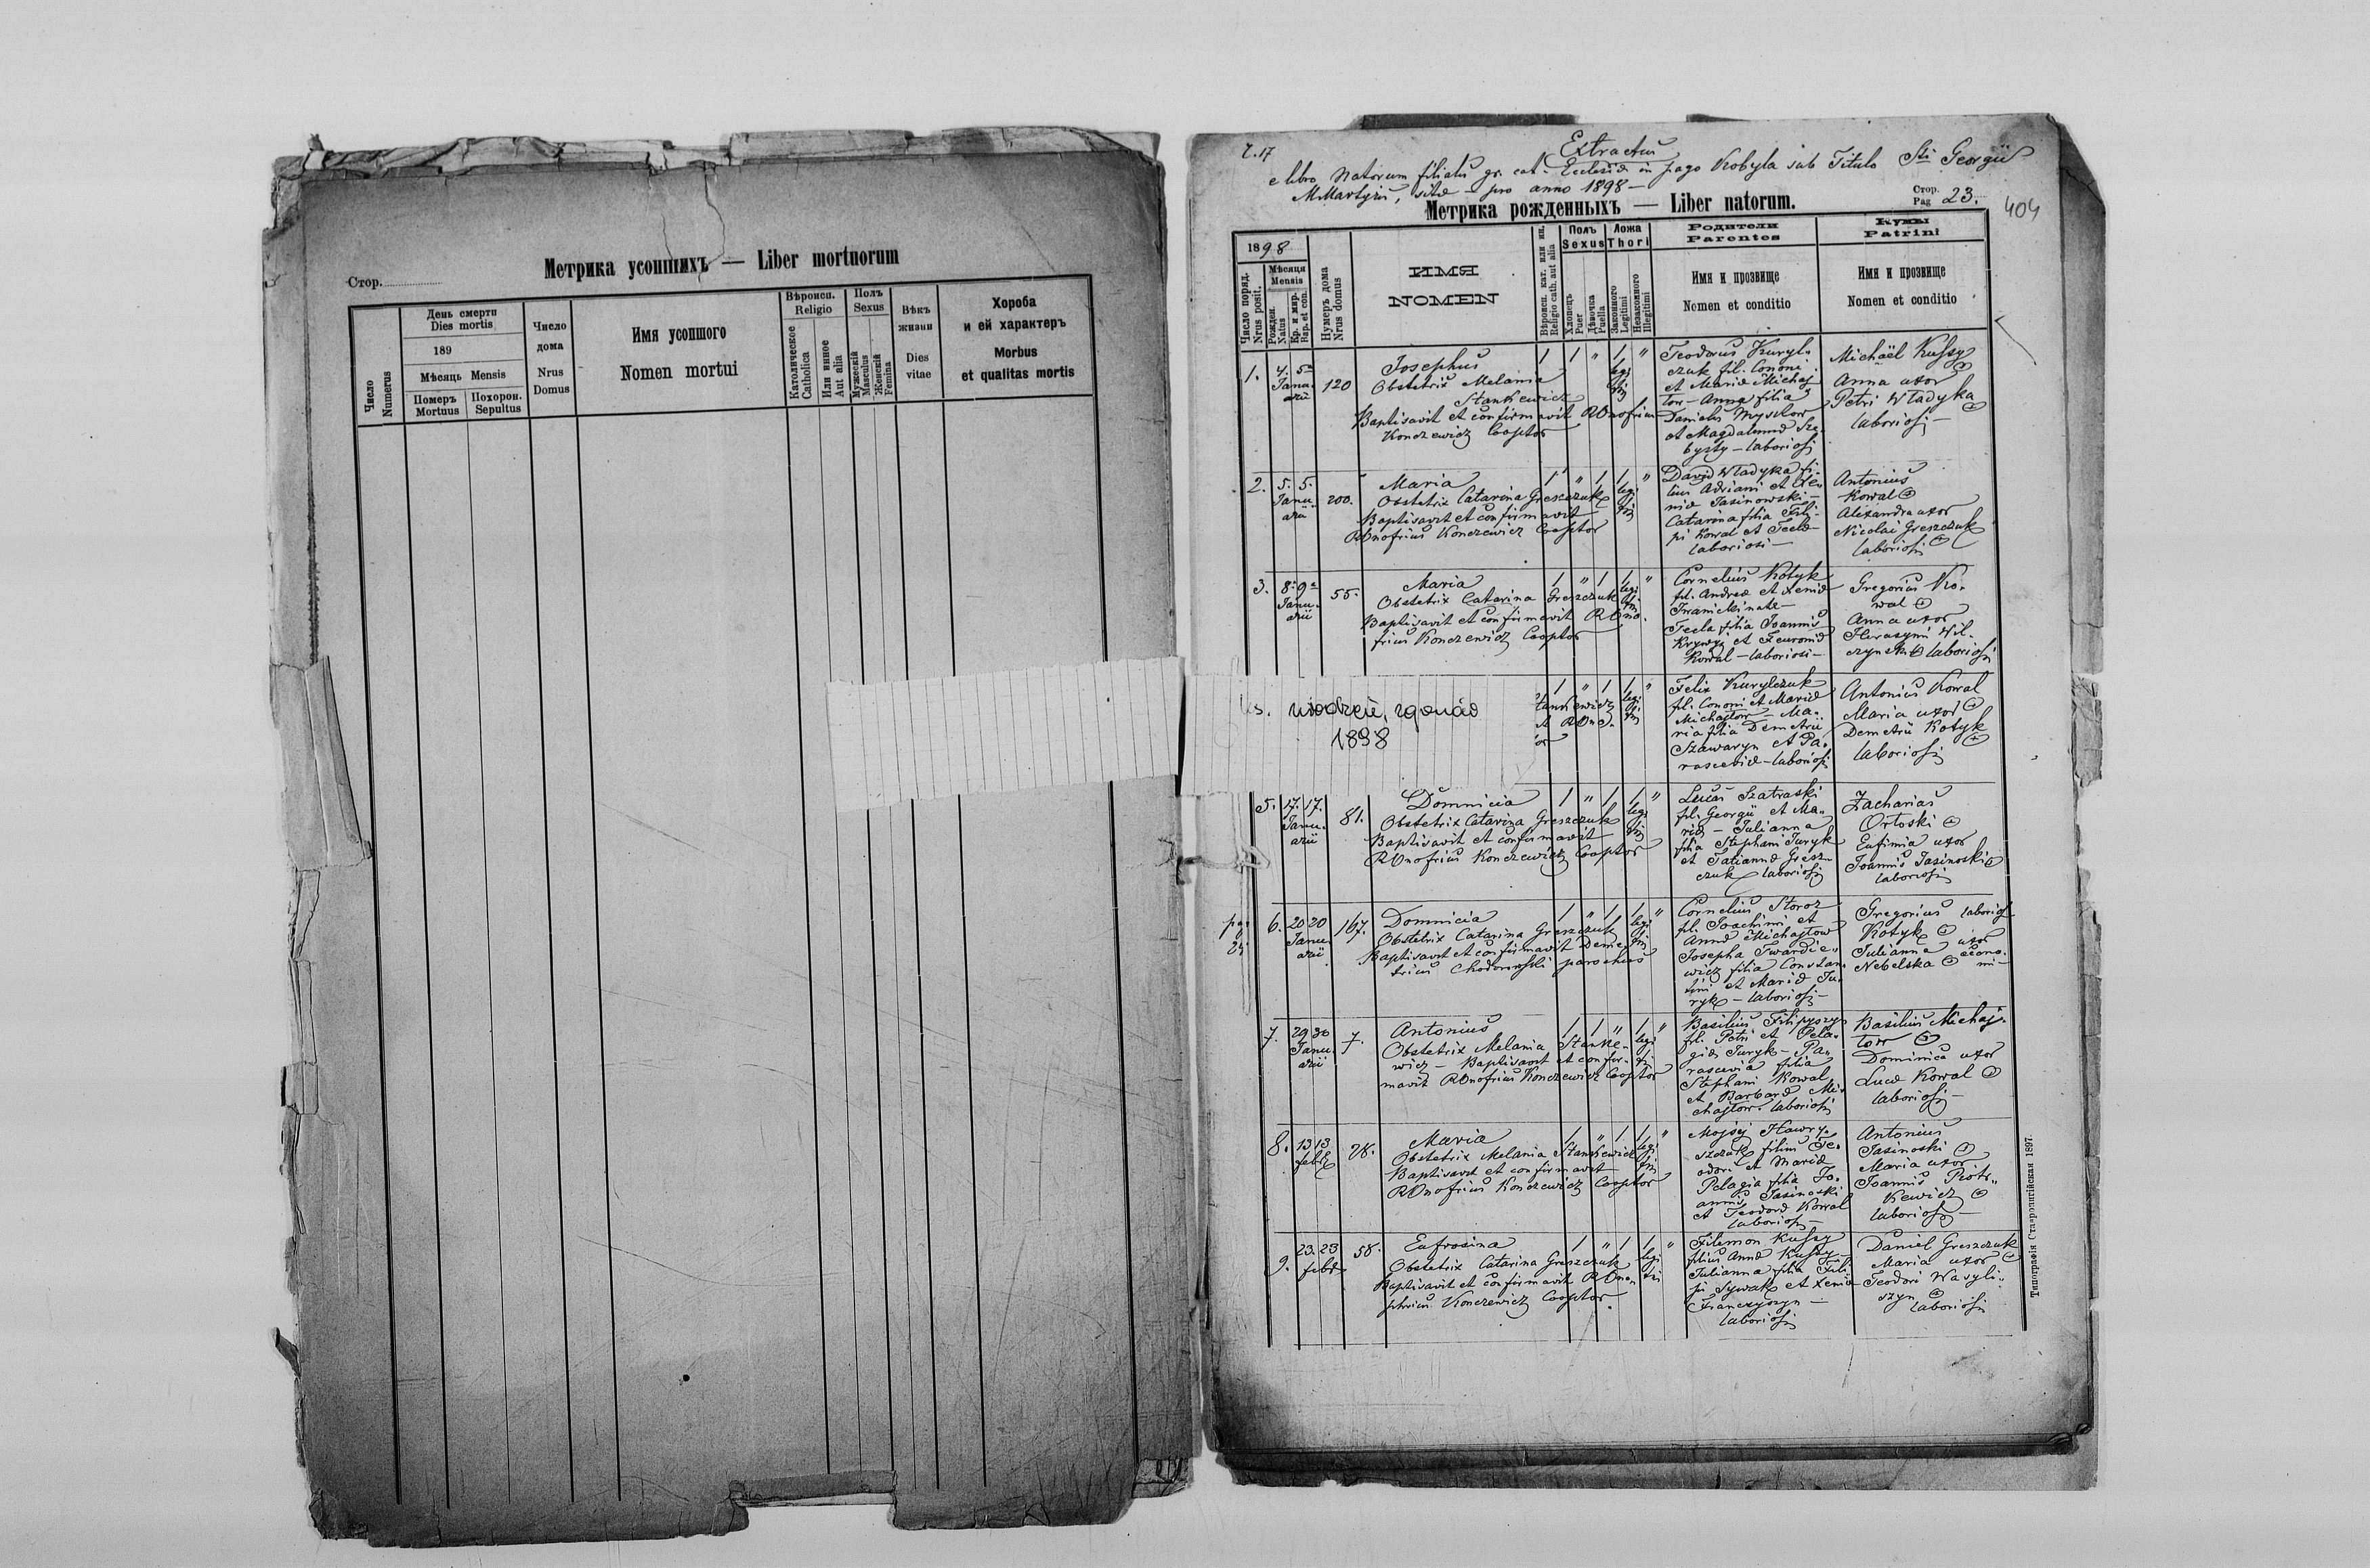 Метрика усопшихъ — Liber mortuorum
Стор.
Число
Numerus
День смерти
Dies mortis
189
Мѣсяць Mensis
Померъ
Mortuus
Похорон.
Sepultus
Число
дома
Nrus
Domus
Имя усопшого
Nomen mortui
Вѣроисп.
Religio
Католическое
Catholica
Или инное
Aut alia
Полъ
Sexus
Мужескій
Masculus
Женскій
Femina
Вѣкъ
жизни
Dies
vitae
Хороба
и ей характеръ
Morbus
et qualitas mortis
Extractus
e libro Natorum filialis gr. cat. Ecclesiæ in pago Kobyla sub Titulo Sti Georgii
M.Martyris, sitæ — pro anno 1898 —
Метрика рожденныхъ — Liber natorum.
Стор.
Pag 23.
404
1898
Число поряд.
Nrus posit.
Мѣсяця
Mensis
Рожден.
Natus
Кр. и мѵр.
Bap. et con.
Нумеръ дома
Nrus domus
ИМЯ
NOMEN
Вѣроисп. кат. или ин.
Religio cath. aut alia
Полъ
Sexus
Хлопецъ
Puer
Дѣвочка
Puella
Ложа
Thori
Законного
Legitimi
Незаконного
Illegitimi
Родители
Parentes
Имя и прозвище
Nomen et conditio
Кумы
Patrini
Имя и прозвище
Nomen et conditio
1. 4. 5
Janu
arii
120
Josephus
Obstetrix Melania
Stankewicz
Baptisavit et confirmavit ROnofrius
Konczewicz Cooptor
1 1 " 1 "
legi
Teodorus Kuryl-
czuk fil. Cononi
et Mariæ Michaj
tow — Anna filia
Danielis
et Magdalenæ
— laboriosi
Michaël Kussy
Anna uxor
Petri Wladyka
laboriosi —
2. 5. 5.
Janu
arii
200.
Maria
Obstetrix Catarina Greszczuk
Baptisavit et confirmavit
ROnofrius Konczewicz Cooptor
1 " 1 1 "
legi
David Wladyka fi-
lius Adriani et Xe-
niæ Jasinowski —
Catarina filia Fili-
pi Kowal et Teclæ
laboriosi —
Antonius
Kowal
Alexandra uxor
Nicolai Greszczuk
laboriosi
3. 8. 9
Janu
arii
55.
Maria
Obstetrix Catarina Greszczuk
Baptisavit et confirmavit ROno-
frius Konczewicz Cooptor
1 " 1 1 "
legi
Cornelius Kotyk
fil. Andreæ et Xeniæ
Tecla filia Joannis
et Feuroniæ
Kowal — laboriosi —
Gregorius Ko-
wal
Anna uxor
Herasymi Wil-
czynski laboriosi
urodzeń, zgonów
1898
1 " 1 1 "
legi
Felix Kurylczuk
fil. Cononi et Mariæ
Michajtow — Ma-
ria filia Demetrii
Szawaryn et Pa-
rasceviæ — laboriosi
Antonius Kowal
Maria uxor
Demetrii Kotyk
laboriosi
5. 17. 17.
Janu.
arii
81.
Domnicia
Obstetrix Catarina Greszczuk
Baptisavit et confirmavit
ROnofrius Konczewicz Cooptor
1 " 1 1 "
legi
Lucas Szatraski
fil. Georgii et Ma-
riæ — Julianna
filia Stephani Juryk
et Tatiannæ Gresz-
czuk laboriosi
Zacharias
Ortoski
Eufimia uxor
Joannis Jasinoski
laboriosi
6. 20 20
Janu
arii
167.
Domnicia
Obstetrix Catarina Greszczuk
Baptisavit et confirmavit Deme-
trius Chodorowski parochus
1 " 1 1 "
legi
Cornelius Storoz
fil. Joachimi et
Annæ Michajtow
Josepha Twardie-
wicz filia Constan-
tini et Mariæ Ju-
ryk — laboriosi —
Gregorius laboriosi
Kotyk
Julianna uxor
Nebelska
7. 29 30
Janu.
arii
7.
Antonius
Obstetrix Melania Stanke-
wicz — Baptisavit et confir-
mavit ROnofrius Konczewicz Cooptor
1 1 " 1 "
legi
Basilius Filipyszyn
fil. Petri et Pela-
giæ Juryk — Pa-
rascevia filia
Stephani Kowal
et Barbaræ Mi-
chajtow. laboriosi
Basilius Michaj-
tow
Dominica uxor
Lucæ Kowal
laboriosi —
8. 13 13
febr
28.
Maria
Obstetrix Melania Stankewicz
Baptisavit et confirmavit
ROnofrius Konczewicz Cooptor
1 " 1 1 "
legi
Mojsej Hawry-
szczuk filius Te-
odori et Mariæ
Pelagia filia Jo-
annis Jasinoski
et Teodoræ Kowal
laboriosi —
Antonius
Jasinoski
Maria uxor
Joannis Piotr-
kewicz
laboriosi —
9. 23. 23
febr
58.
Eufrosina
Obstetrix Catarina Greszczuk
Baptisavit et confirmavit ROno-
phrius Konczewicz Cooptor.
1 " 1 1 "
legi
Filemon Kussy
filius Annæ Kussy —
Julianna filia Fili
pi Sywak et Xeniæ
Franczyszyn —
laboriosi
Daniel Greszczuk
Maria uxor
Teodori Wasyli-
szyn
laboriosi
Типографія Ставропигійская 1897.